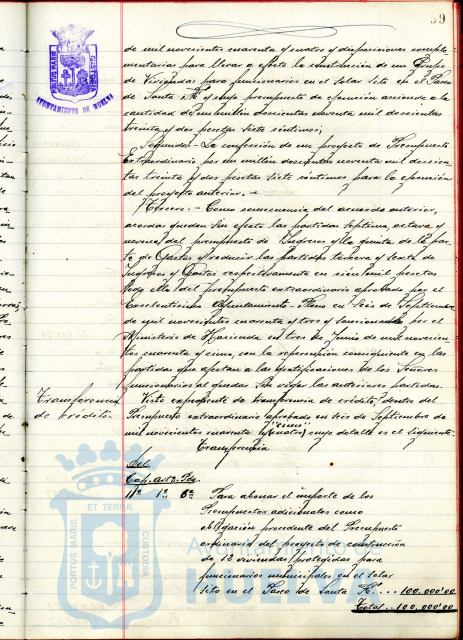 59
AYUNTAMIENTO DE HUELVA
de mil novecientos cuarenta y cuatro y disposiciones comple-
mentarias para llevar a efecto la construcción de un Grupo
de Viviendas para funcionarios en el solar sito en el Paseo
de Santa Fé y cuyo presupuesto de ejecución asciende a la
cantidad de un millón doscientas noventa mil doscientas
treinta y dos pesetas siete céntimos;
Segundo.- La confección de un proyecto de Presupuesto
Extraordinario por un millón doscientas noventa mil doscien-
tas treinta y dos pesetas siete céntimos para la ejecución
del proyecto anterior.-
Tercero.- Como consecuencia del acuerdo anterior,
acordar queden sin efecto las partidas séptima, octava y
novena del presupuesto de Ingresos y la quinta de la par-
te de Gastos y reducir las partidas tercera y sexta de
Ingresos y Gastos respectivamente en cien mil pesetas
todo ello del presupuesto extraordinario aprobado por el
Excelentísimo Ayuntamiento Pleno en seis de Septiembre
de mil novecientos cuarenta y tres y sancionado por el
Ministerio de Hacienda en tres de Junio de mil novecien-
tos cuarenta y cinco, con la repercusión consiguiente en las
partidas que afectan a las gratificaciones de los Señores
funcionarios al quedar sin efecto las anteriores partidas.
Transferencia
de crédito.
Visto expediente de transferencia de crédito, dentro del
Presupuesto extraordinario aprobado en seis de Septiembre de
mil novecientos cuarenta y (cuatro) cuyo detalle es el siguiente:
Transferencia
Del
Cap. Art. Pda.
11º 1º 6ª Para abonar el importe de los
Presupuestos adicionales como
obligación procedente del Presupuesto
ordinario del proyecto de construcción
de 12 viviendas protegidas para
funcionarios municipales en el solar
sito en el Paseo de Santa Fé.... 100.000'00
Total.. 100.000'00
PORTUS MARIS ET TERRAE CUSTODIA
Ayuntamiento de
HUELVA